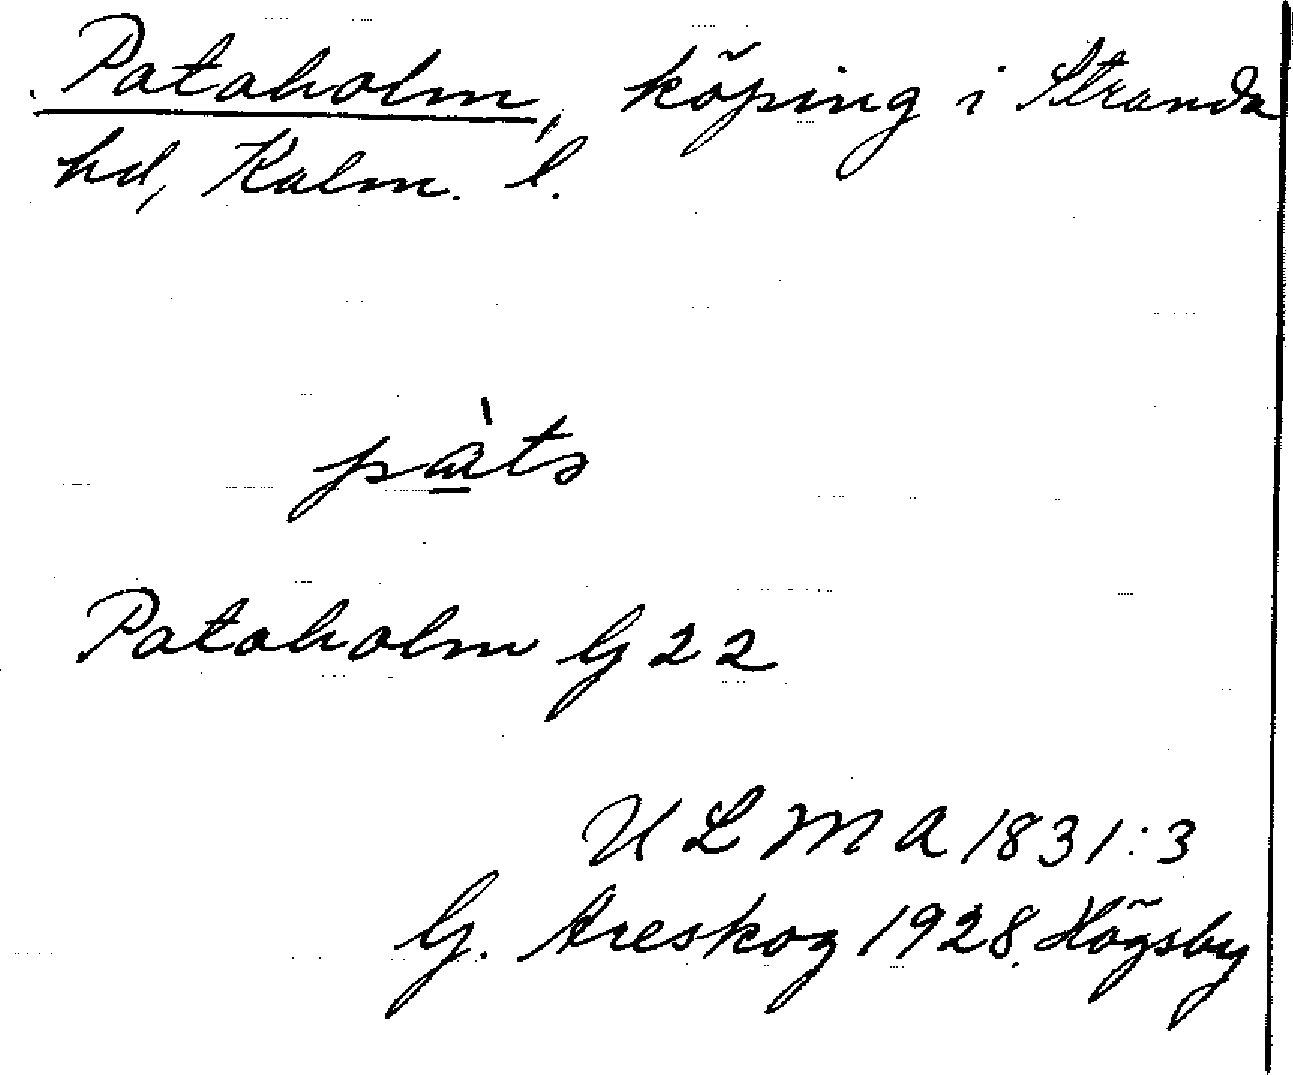 Pataholm, köping i Stranda
hd, Kalm. l.
pàts
Pataholm G 22
ULMA 1831:3
G. Areskog 1928. Högsby